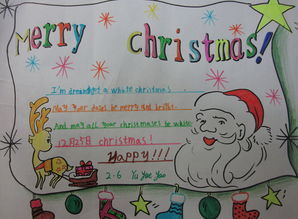 Merry christmas!
I'm dreaming of a white christmas
May your days be merry and bright
And may all your christmases be white
12月25日 christmas!
Happy!!!
2-6 Yu Yao Yao